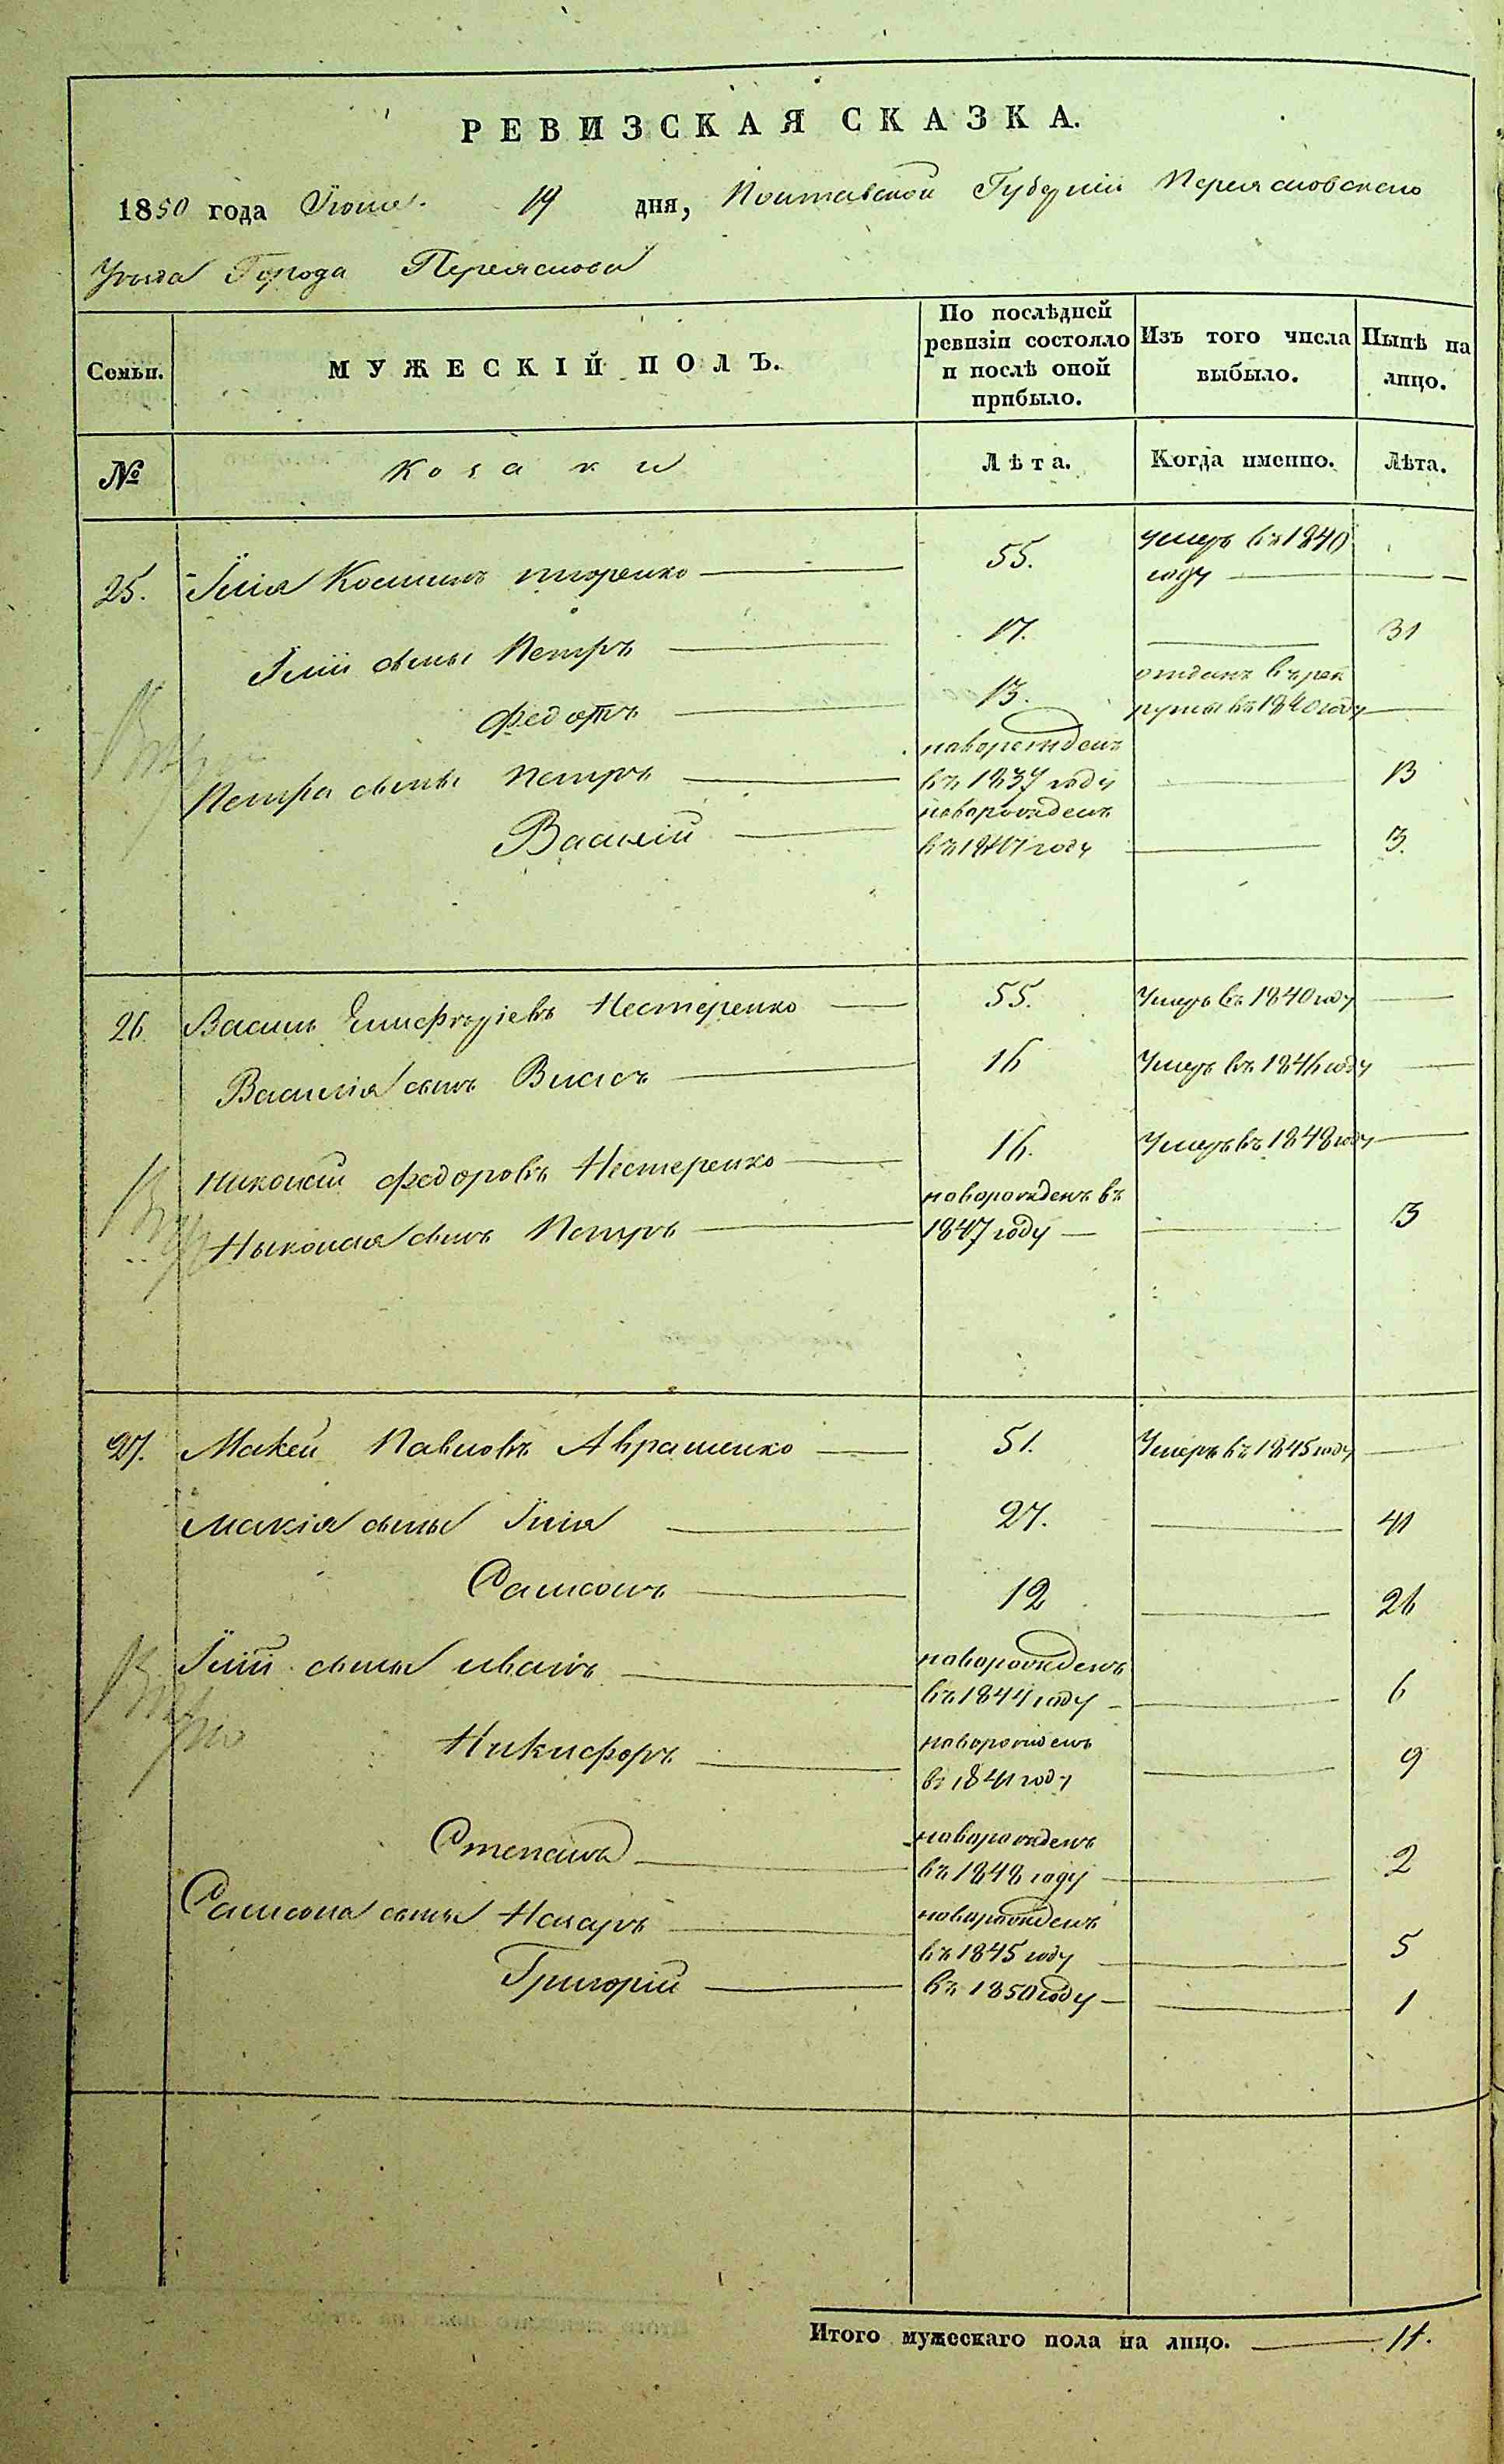 РЕВИЗСКАЯ СКАЗКА.
1850 года Июня 19 дня, Полтавской Губерніи Переясловского
Уезда Города Переяслова
Семьи. МУЖЕСКІЙ ПОЛЪ. По послѣдней ревизіи состояло и послѣ оной прибыло. Изъ того числа выбыло. Нынѣ на лицо.
№ Козаки Лѣта. Когда именно. Лѣта.
25. Илія Костинъ 55. умеръ въ 1840 году
Иліи сыны Петръ 17. 31
Федотъ 13. отданъ въ рекруты въ 1840 году
Петра сыны Петръ новорожденъ въ 1837 году 13
Василій новорожденъ въ 1847 году 3.
26 Василь Нестеренко 55. Умеръ въ 1840 году
Василія сынъ Власъ 16 Умеръ въ 1846 году
Николай Федоровъ Нестеренко 16. Умеръ въ 1848 году
Ныколая сынъ Петръ новорожденъ въ 1847 году 3
27. Макей Павловъ Авраменко 51. Умеръ въ 1845 году
Макія сыны Илія 27. 41
Самсонъ 12 26
Иліи сыны Иванъ новорожденъ въ 1844 году 6
Никифоръ новорожденъ въ 1841 году 9
Степанъ новорожденъ въ 1848 году 2
Самсона сыны Назаръ новорожденъ въ 1845 году 5
Григорій въ 1850 году 1
Итого мужескаго пола на лицо. 11.